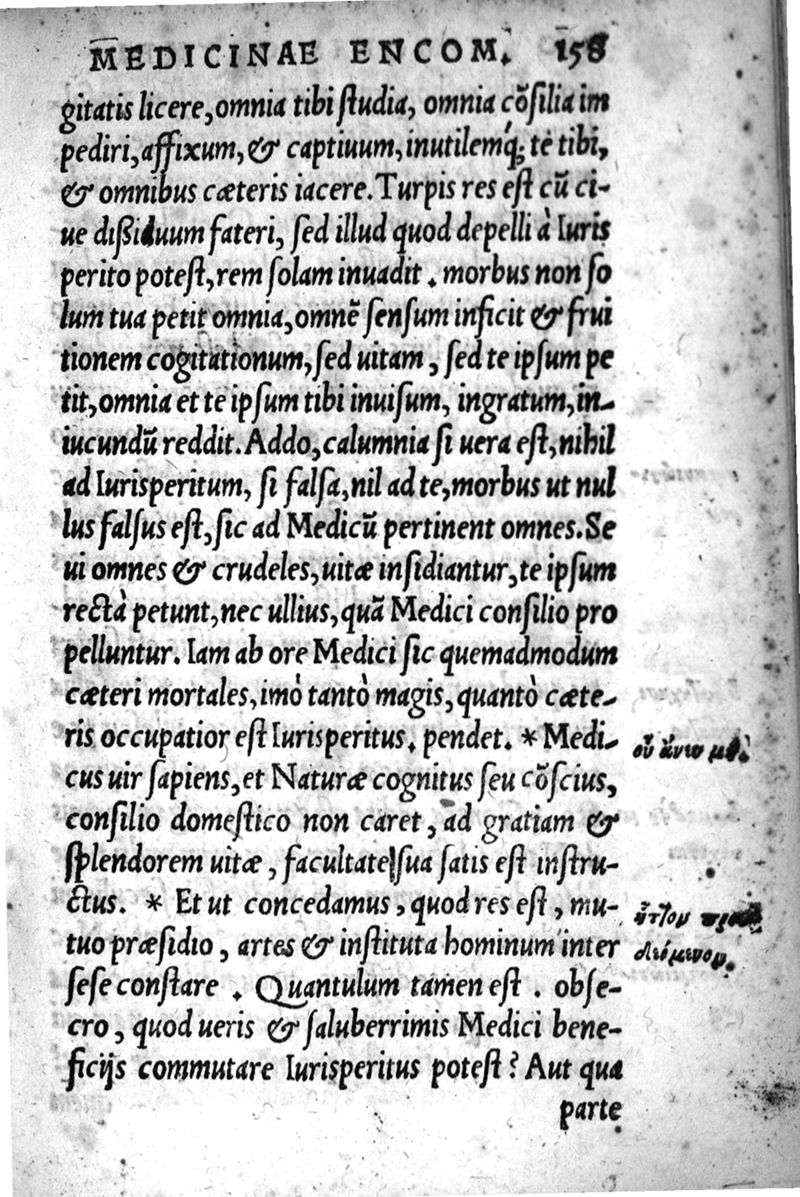 MEDICINAE ENCOM. 158
gitatis licere, omnia tibi ſtudia, omnia cõſilia im
pediri, affixum, & captiuum, inutilemq́; te tibi,
& omnibus cæteris iacere. Turpis res eſt cũ ci-
ue dißiduum fateri, ſed illud quod depelli à Iuris
perito poteſt, rem ſolam inuadit. morbus non ſo
lum tua petit omnia, omnẽ ſenſum inficit & frui
tionem cogitationum, ſed uitam, ſed te ipſum pe
tit, omnia et te ipſum tibi inuiſum, ingratum, in-
iucundũ reddit. Addo, calumnia ſi uera eſt, nihil
ad Iurisperitum, ſi falſa, nil ad te, morbus ut nul
lus falſus eſt, ſic ad Medicũ pertinent omnes. Se
ui omnes & crudeles, uitæ inſidiantur, te ipſum
rectà petunt, nec ullius, quã Medici conſilio pro
pelluntur. Iam ab ore Medici ſic quemadmodum
cæteri mortales, imò tantò magis, quantò cæte-
ris occupatior eſt Iurisperitus. pendet. * Medi-
οὐ ἄνευ
cus uir ſapiens, et Naturæ cognitus ſeu cõſcius,
conſilio domeſtico non caret, ad gratiam &
ſplendorem uitæ, facultate ſua ſatis eſt inſtru-
ctus. * Et ut concedamus, quod res eſt, mu-
ἧττον
tuo præſidio, artes & inſtituta hominum inter
seſe conſtare. Quantulum tamen eſt. obſe-
cro, quod ueris & ſaluberrimis Medici bene-
ficijs commutare Iurisperitus poteſt? Aut qua
parte